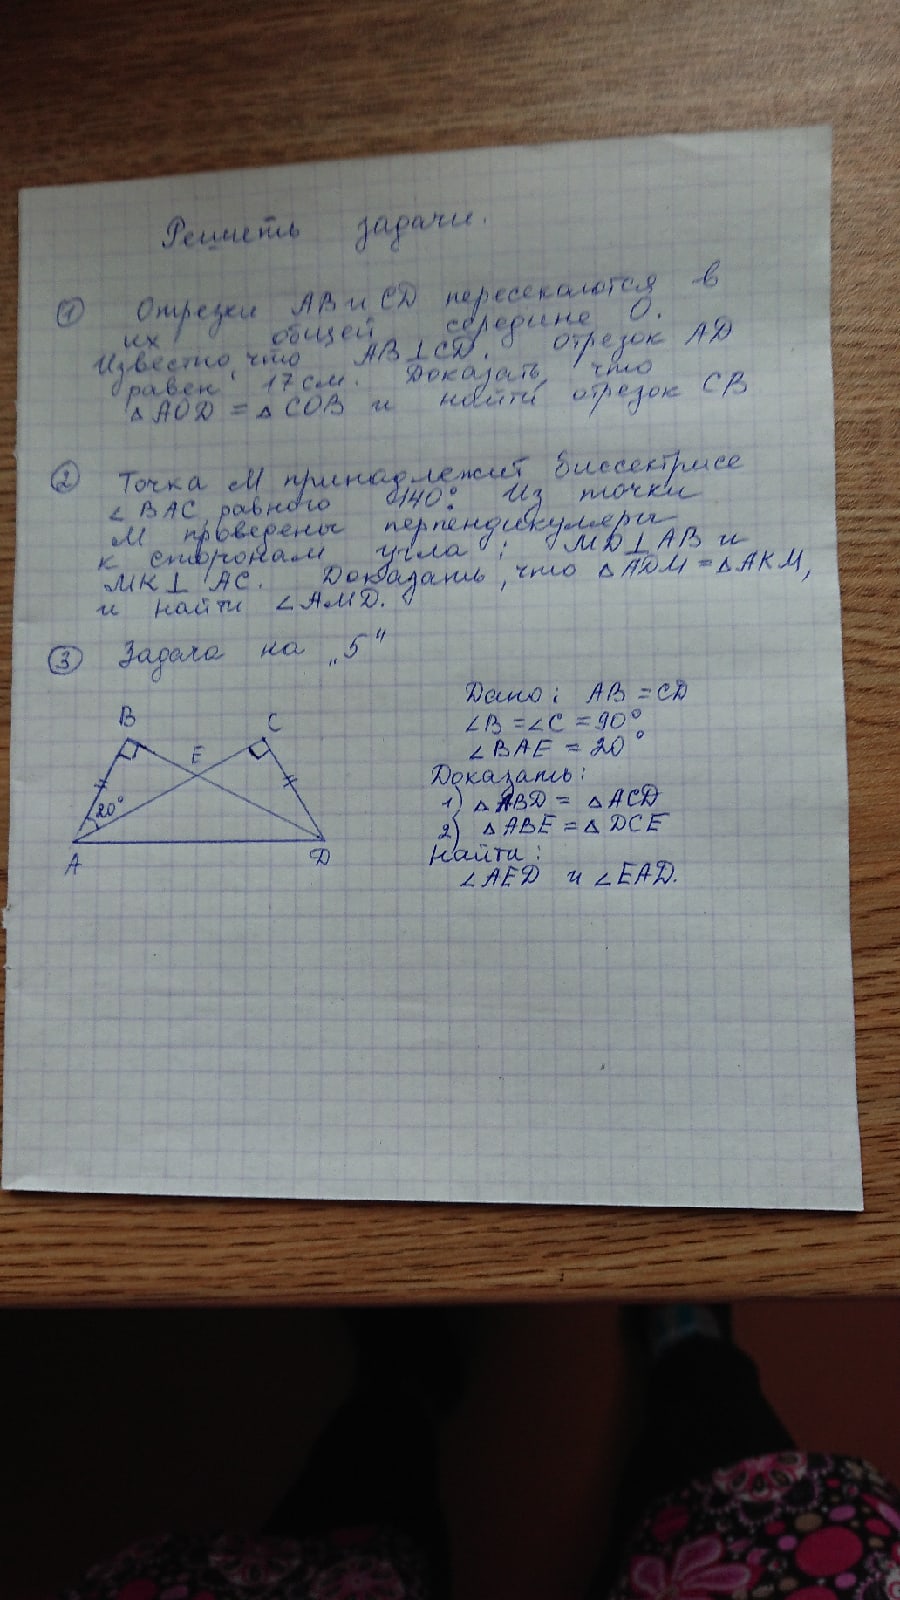 Решить задачи.
① Отрезки AB и CD пересекаются в
их общей середине O.
Известно, что AB⊥CD. отрезок AD
равен 17 см. Доказать, что
△AOD = △COB и найти отрезок CB
② Точка M принадлежит биссектрисе
∠BAC равного 140°. Из точки
M проведены перпендикуляры
к сторонам угла: MD⊥AB и
MK⊥AC. Доказать, что △ADM = △AKM,
и найти ∠AMD.
③ Задача на „5“
B C
E
20°
A D
Дано: AB = CD
∠B = ∠C = 90°
∠BAE = 20°
Доказать:
1) △ABD = △ACD
2) △ABE = △DCE
Найти:
∠AED и ∠EAD.